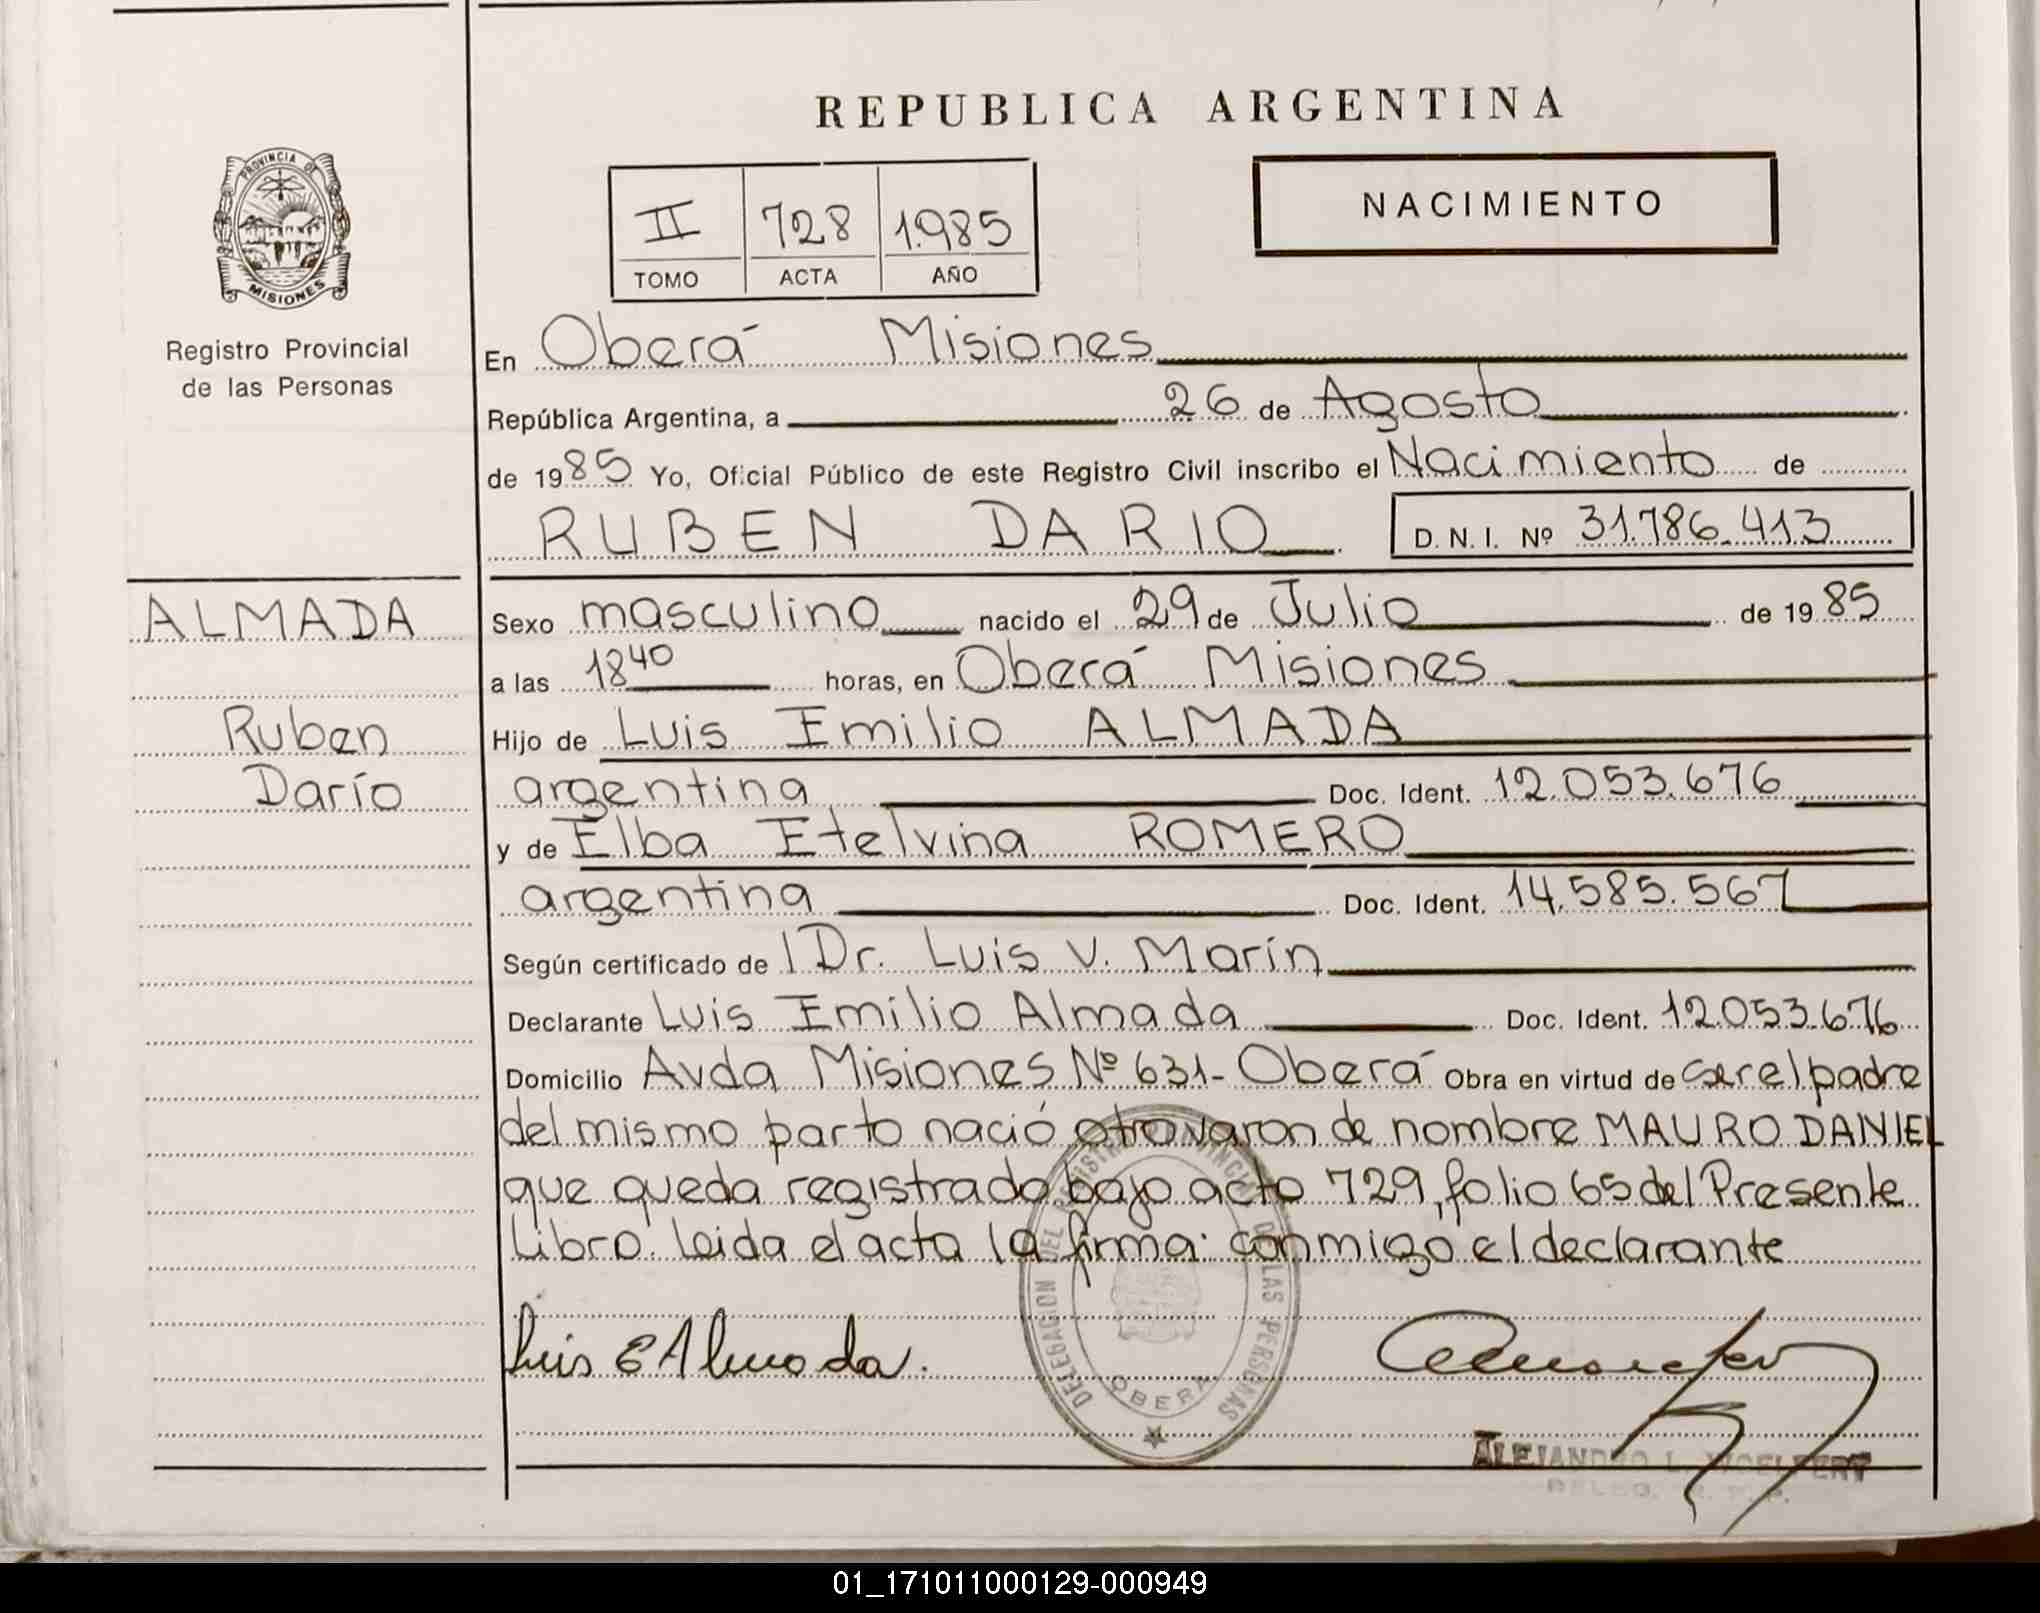 REPUBLICA ARGENTINA
PROVINCIA DE
MISIONES
Registro Provincial
de las Personas
II 728 1.985
TOMO ACTA AÑO
NACIMIENTO
En Oberá Misiones
República Argentina, a 26 de Agosto
de 1985 Yo, Oficial Público de este Registro Civil inscribo el Nacimiento de
RUBEN DARIO D. N. I. Nº 31.786.413
ALMADA
Ruben
Darío
Sexo masculino nacido el 29 de Julio de 1985
a las 18 40 horas, en Oberá Misiones
Hijo de Luis Emilio ALMADA
argentina Doc. Ident. 12.053.676
y de Elba Etelvina ROMERO
argentina Doc. Ident. 14.585.567
Según certificado de Dr. Luis V. Marín
Declarante Luis Emilio Almada Doc. Ident. 12.053.676
Domicilio Avda Misiones Nº 631- Oberá Obra en virtud de ser el padre
del mismo parto nació otro varon de nombre MAURO DANIEL
que queda registrado bajo acto 729, folio 65 del Presente
Libro. Leida el acta la firma: conmigo el declarante
Luis E Almada.
DELEGACION DEL REGISTRO PROVINCIAL DE LAS PERSONAS
OBERA
ALEJANDRO L.
01_171011000129-000949